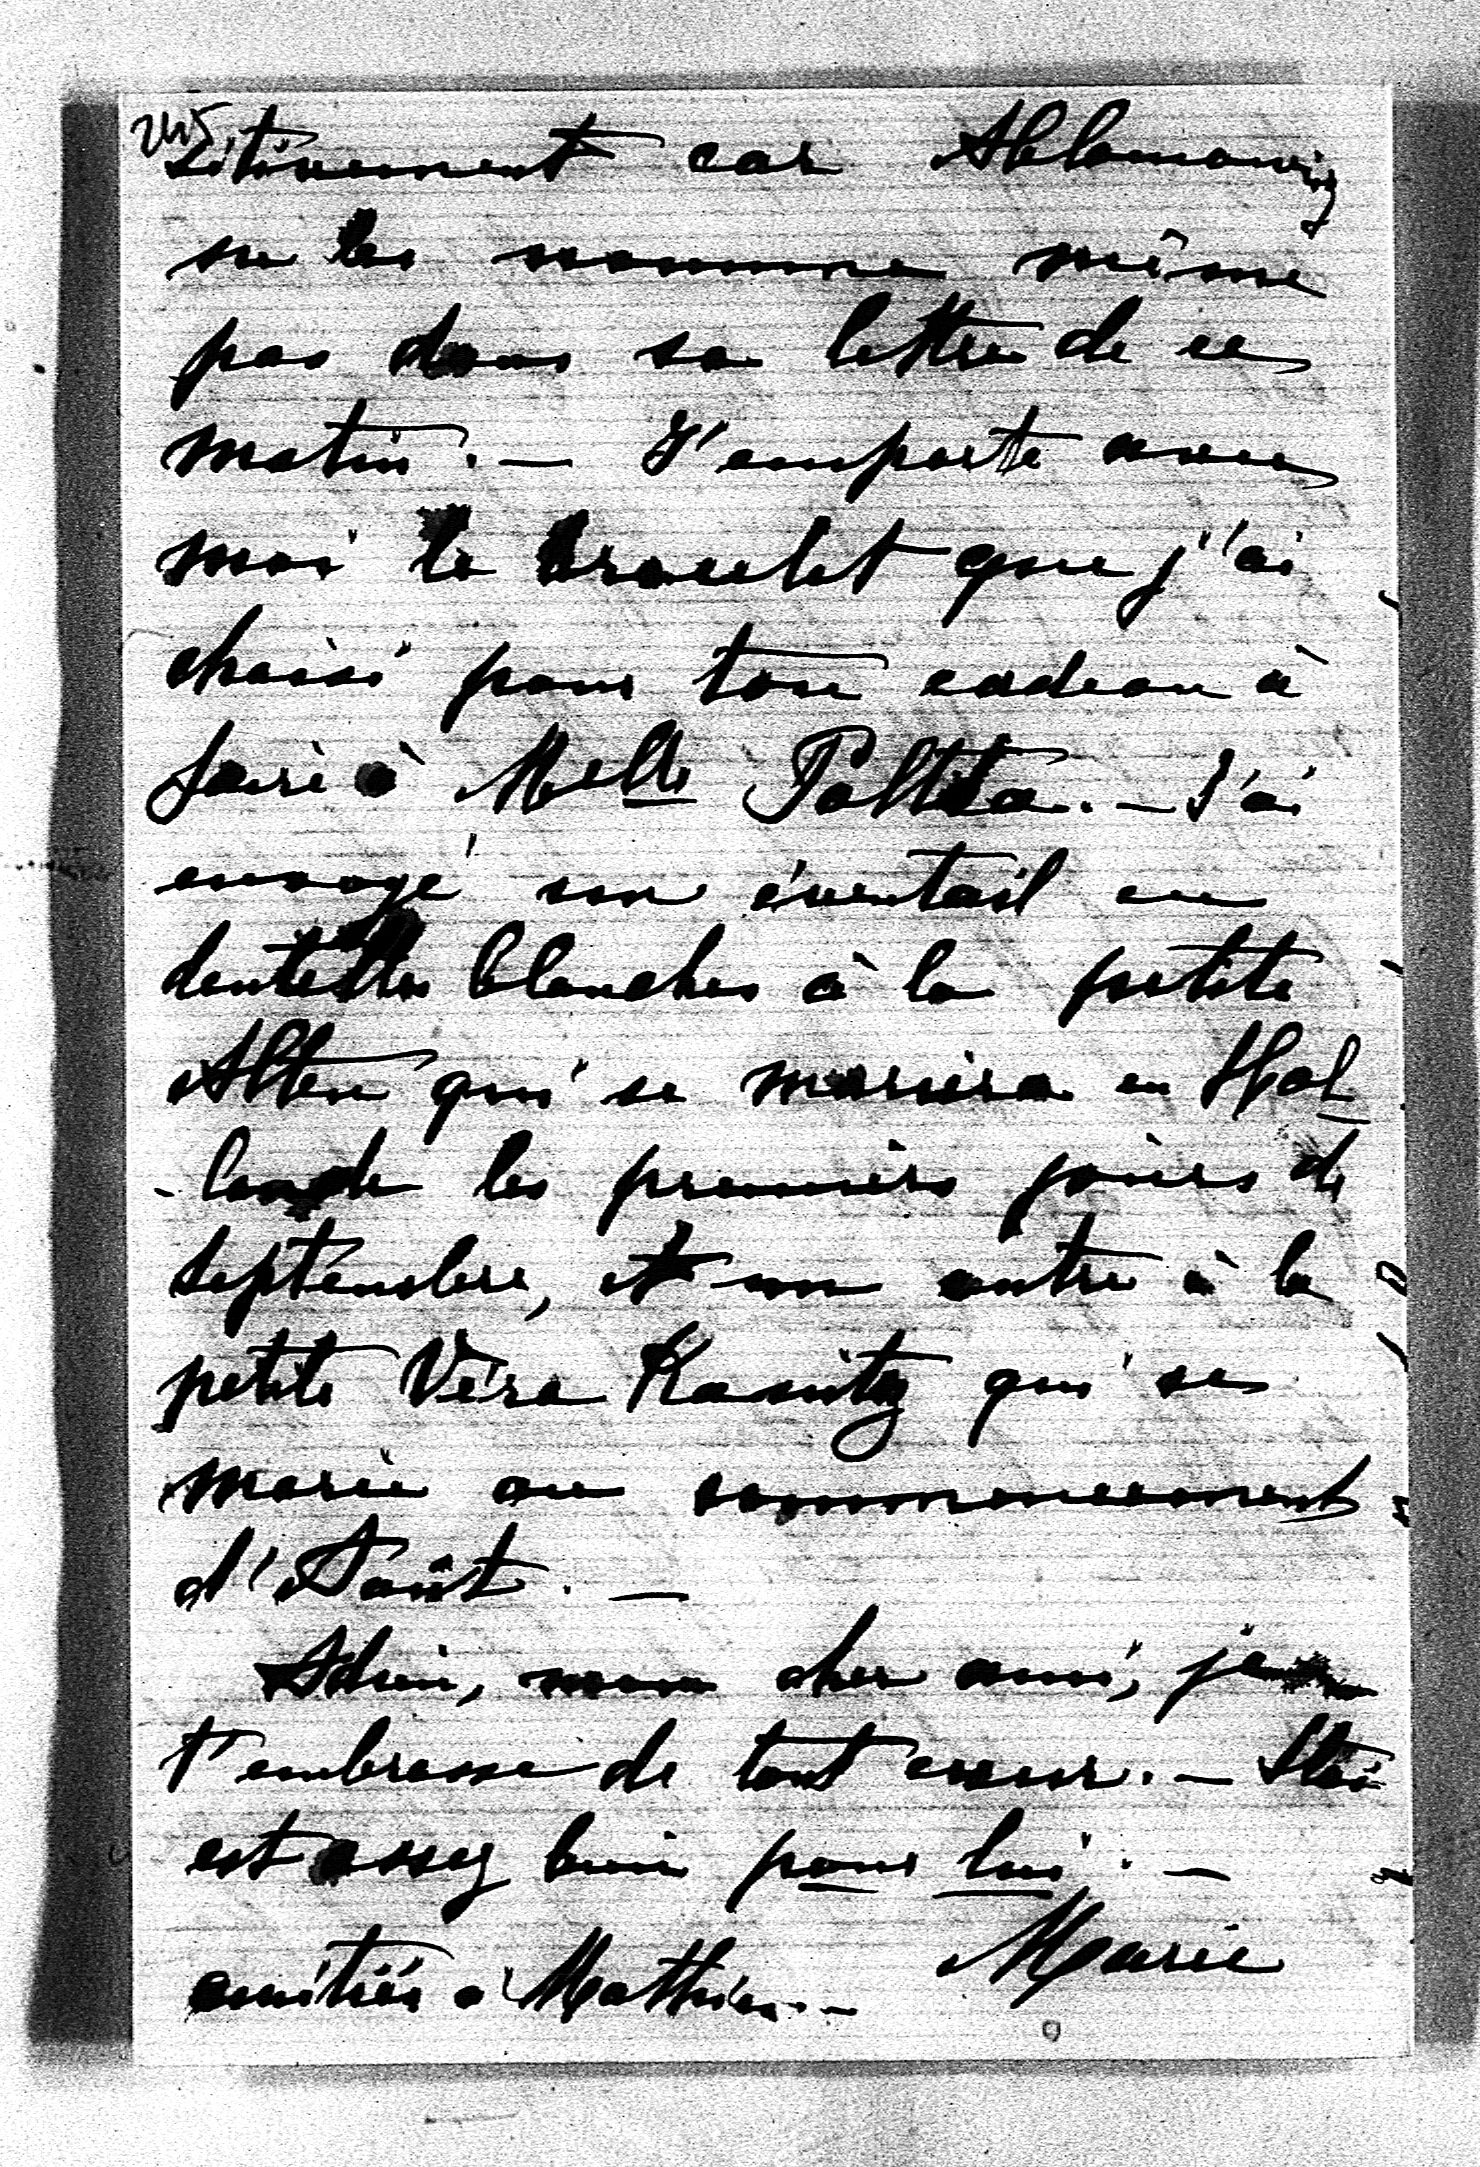 245
sitivement car Ablamowicz
ne les nomme même
pas dans sa lettre de ce
matin. — J'emporte avec
moi le bracelet que j'ai
choisi pour ton cadeau à
faire à Melle Poltta. — J'ai
envoyé un éventail en
dentelles blanches à la petite
Alten qui se mariera en Hol
-lande les premiers jours de
Septembre, et un autre à la
petite Véra Kanitz qui se
marie au commencement
d'Août. —
Adieu, mon cher ami, je
t'embrasse de tout coeur. —
est assez bien pour lui. —
Marie
amitiés à Mathieu. —